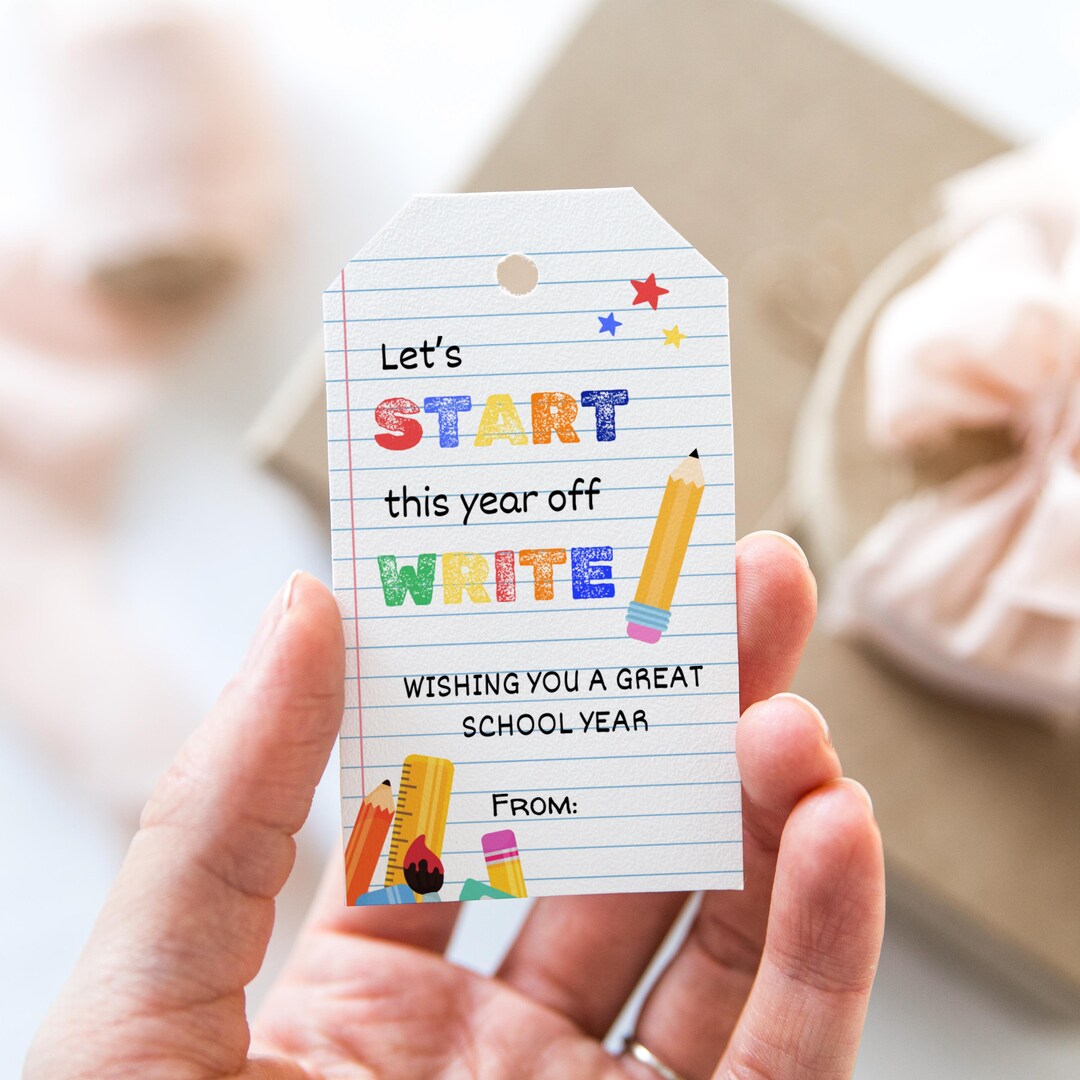 Let's
START
this year off
WRITE
WISHING YOU A GREAT
SCHOOL YEAR
FROM: